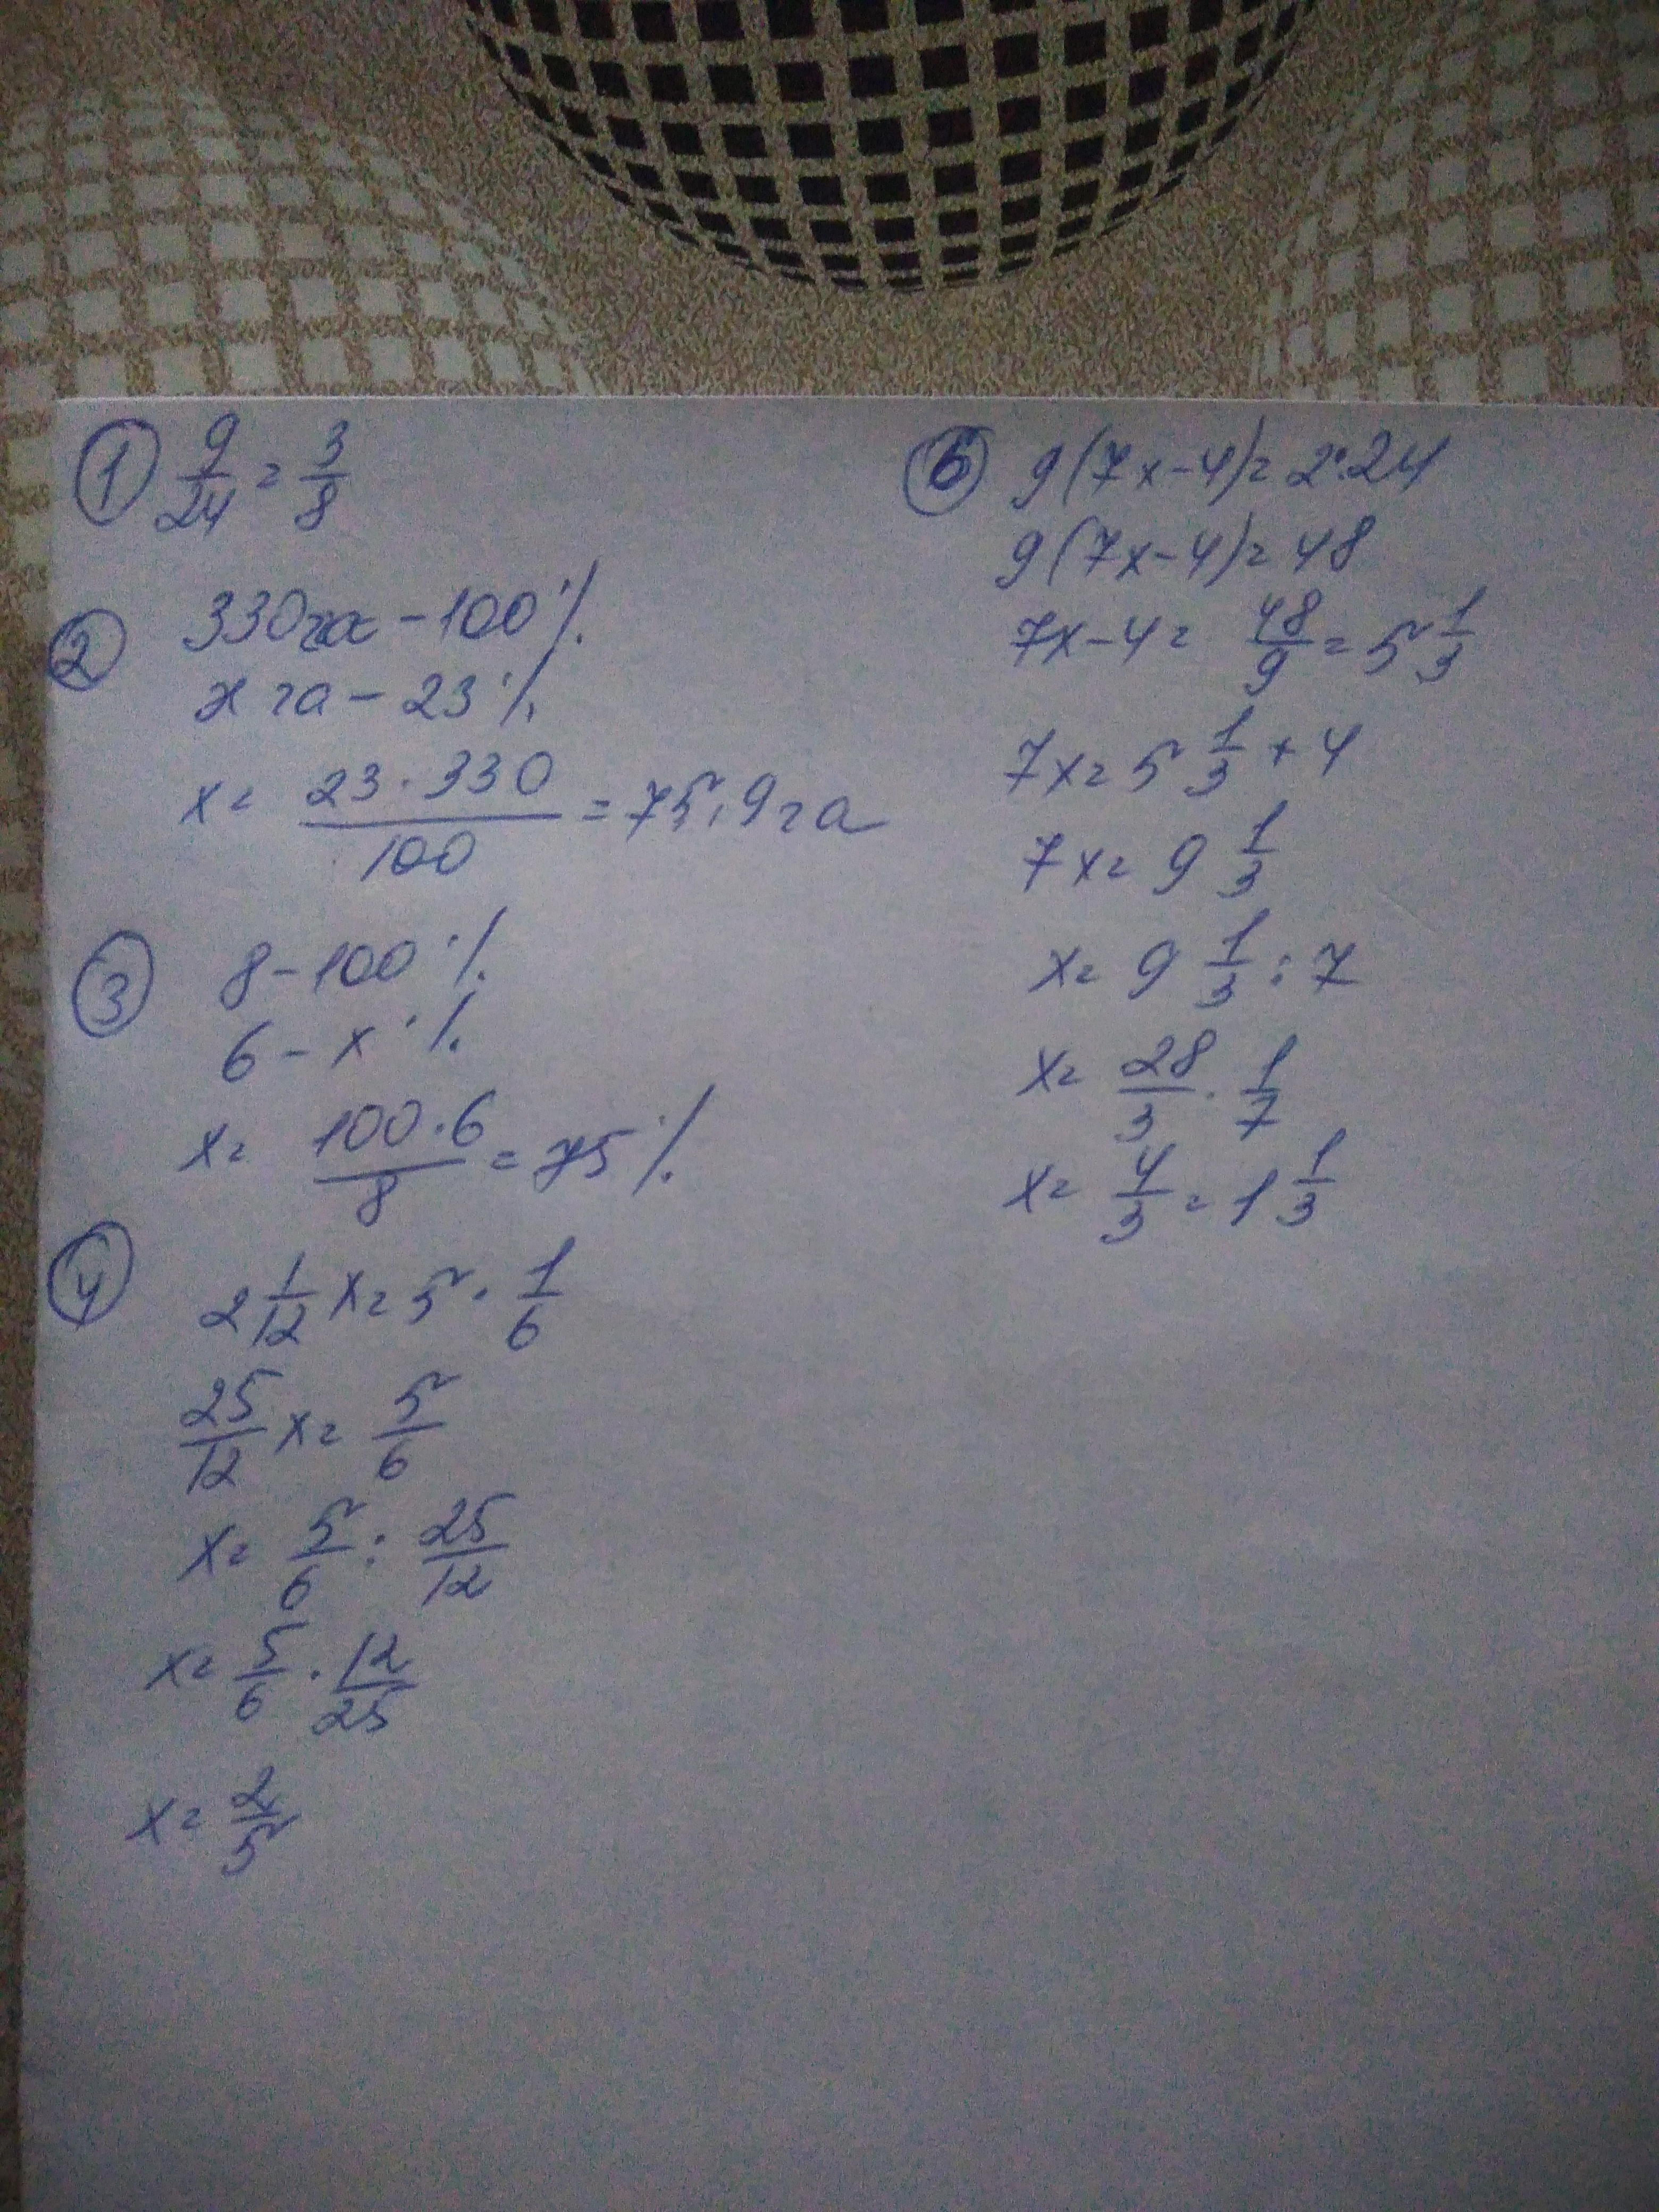 ① 9/24 = 3/8
② 330га - 100%
x га - 23%
x = 23·330/100 = 75,9га
③ 8 - 100%
6 - x%
x = 100·6/8 = 75%
④ 2 1/12 x = 5 · 1/6
25/12 x = 5/6
x = 5/6 : 25/12
x = 5/6 · 12/25
x = 2/5
⑥ 9(7x-4) = 2·24
9(7x-4) = 48
7x-4 = 48/9 = 5 1/3
7x = 5 1/3 + 4
7x = 9 1/3
x = 9 1/3 : 7
x = 28/3 · 1/7
x = 4/3 = 1 1/3